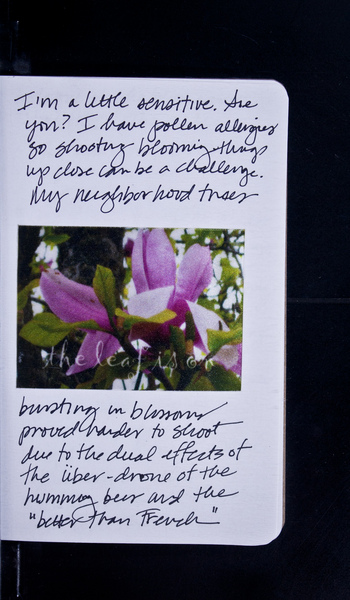 I'm a little sensitive. Are
you? I have pollen allergies
so shooting blooming things
up close can be a challenge.
My neighborhood trees
the leaf is on
bursting in blossoms
proved harder to shoot
due to the dual effects of
the über-drone of the
humming bees and the
"better than French"